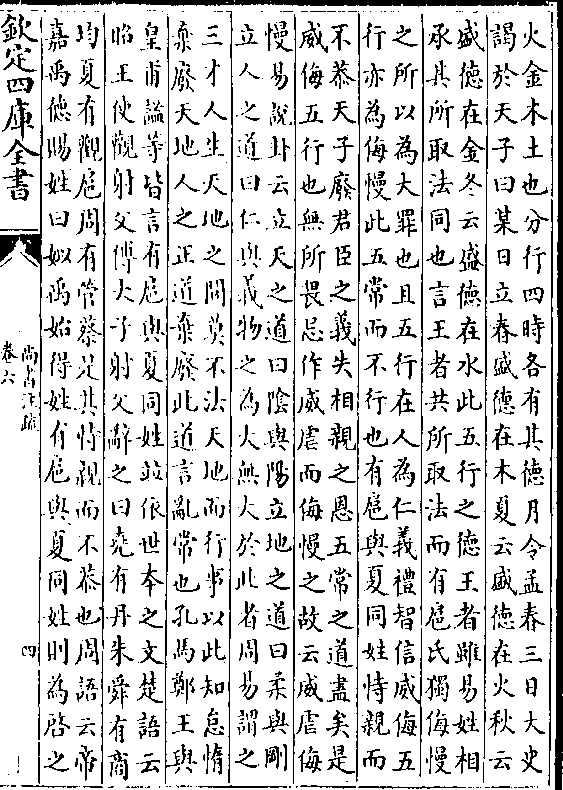 火金木土也分行四時各有其德月令孟春三日大史
謁於天子曰某日立春盛德在木夏云盛德在火秋云
盛德在金冬云盛德在水此五行之德王者雖易姓相
承其所取法同也言王者共所取法而有扈氏獨侮慢
之所以為大罪也且五行在人為仁義禮智信威侮五
行亦為侮慢此五常而不行也有扈與夏同姓恃親而
不恭天子廢君臣之義失相親之恩五常之道盡矣是
威侮五行也無所畏忌作威虐而侮慢之故云威虐侮
慢易說卦云立天之道曰陰與陽立地之道曰柔與剛
立人之道曰仁與義物之為大無大於此者周易謂之
三才人生天地之間莫不法天地而行事以此知怠惰
棄廢天地人之正道棄廢此道言亂常也孔馬鄭王與
皇甫謐等皆言有扈與夏同姓並依世本之文楚語云
昭王使觀射父傅大子射父辭之曰堯有丹朱舜有商
均夏有觀扈周有管蔡是其恃親而不恭也周語云帝
嘉禹德賜姓曰姒禹始得姓有扈與夏同姓則為啓之
欽定四庫全書
尚書注疏
卷六
四